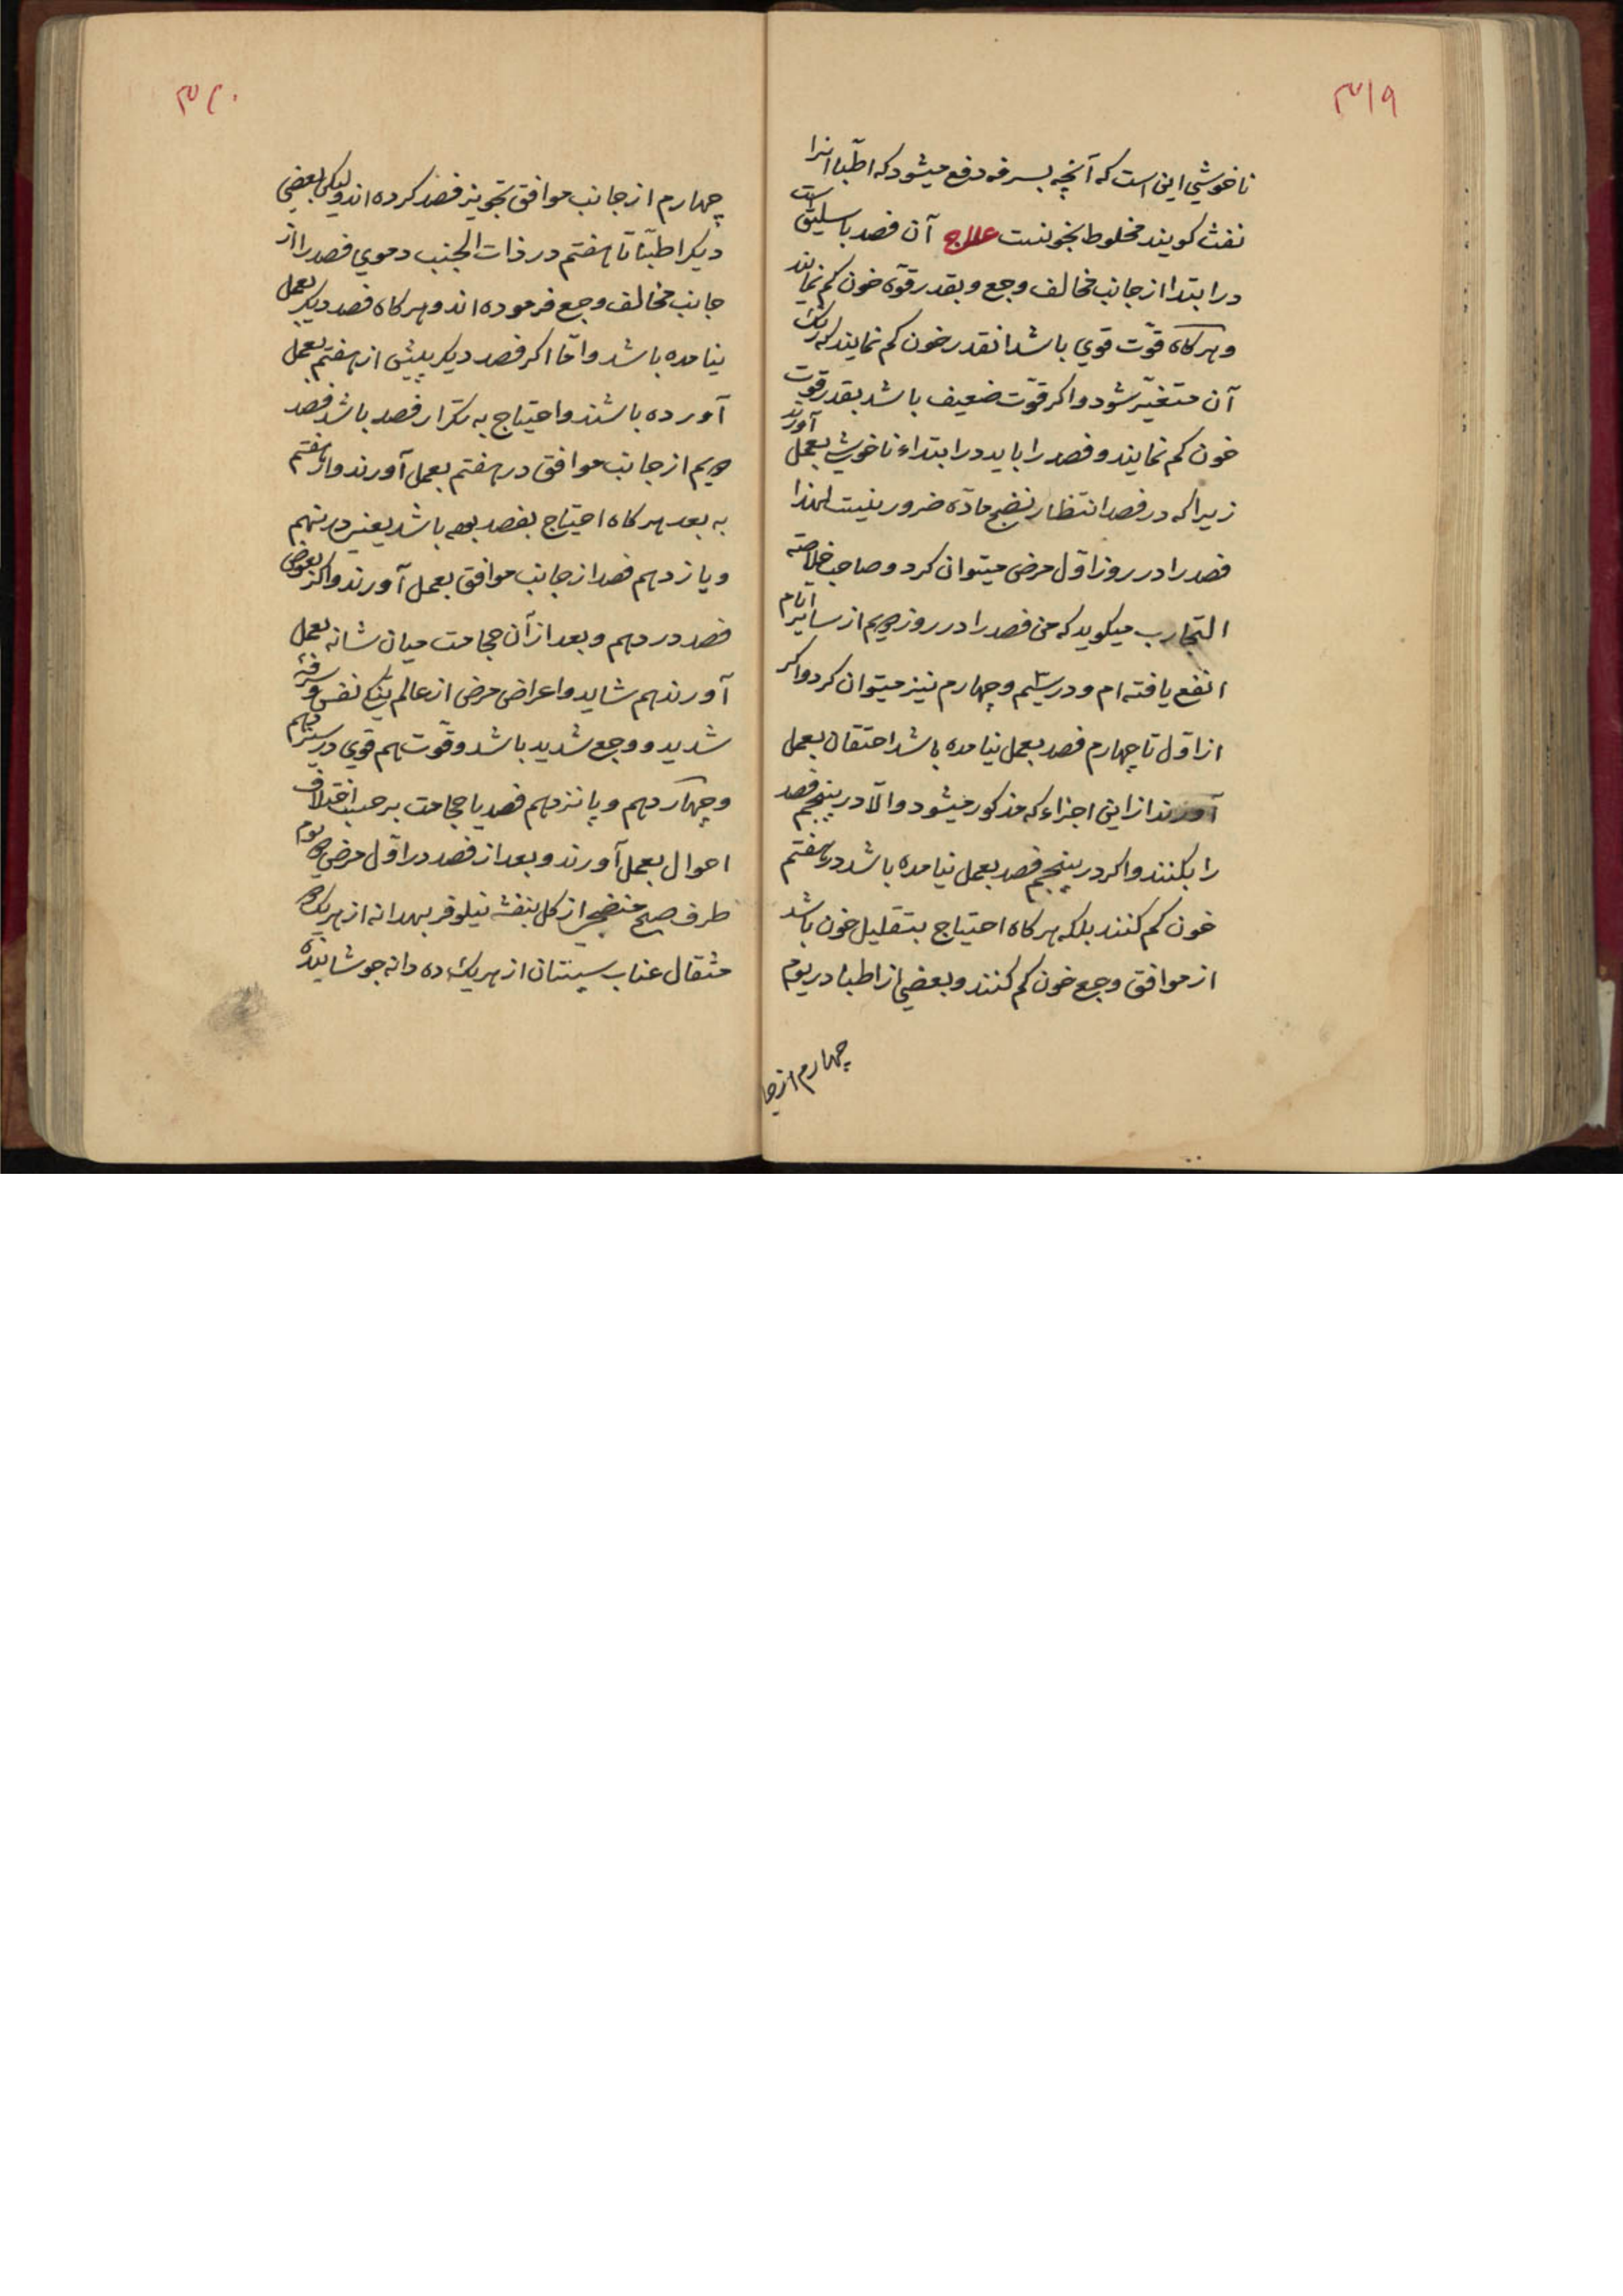 ۳۱۹
ناخوشي اين است كه آنچه بسرفه دفع ميشود كه اطبّا انرا
نفث كويند مخلوط بخونست علاج آن فصد باسليق است
در ابتدا از جانب مخالف وجع و بقدر قوّه خون كم نمايند
و هركاه قوّت قوي باشد انقدر خون كم نمايند كه رنك
آن متغيّر شود و اكر قوّت ضعيف باشد بقدر قوت
خون كم نمايند و فصد را بايد در ابتداء ناخوشي بعمل آورند
زيرا كه در فصد انتظار نضج مادّه ضرور نيست لهذا
فصد را در روز اوّل مرض ميتوان كرد و صاحب خلاصة
التجارب ميكويد كه من فصد را در روز دويم از ساير ايام
انفع يافته ام و در سيم و چهارم نيز ميتوان كرد و اكر
از اوّل تا چهارم فصد بعمل نيامده باشد احتقان بعمل
آورند از اين اجزاء كه مذكور ميشود والّا در پنجم فصد
را بكنند و اكر در پنجم فصد بعمل نيامده باشد در هفتم
خون كم كنند بلكه هركاه احتياج بتقليل خون باشد
از موافق وجع خون كم كنند و بعضي از اطبا در يوم
چهارم از جا
۳۲۰
چهارم از جانب موافق تجويز فصد كرده اند و ليكن بعضي
ديكر اطبّا تا هفتم در ذات الجنب دموي فصد را از
جانب مخالف وجع فرموده اند و هركاه فصد ديكر بعمل
نيامده باشد و امّا اكر فصد ديكر پيش از هفتم بعمل
آورده باشند و احتياج به تكرار فصد باشد فصد
دويم از جانب موافق در هفتم بعمل آورند و از هفتم
به بعد هركاه احتياج بفصد بوده باشد يعني در نهم
و يازدهم فصد از جانب موافق بعمل آورند و اكر بعوض
فصد در دهم و بعد از آن حجامت ميان شانه بعمل
آورند هم شايد و اعراض مرض از عالم تنك نفس و سرفه
شديد و وجع شديد باشد و قوّت هم قوي در سيزدهم
و چهاردهم و پانزدهم فصد يا حجامت بر حسب اختلاف
احوال بعمل آورند و بعد از فصد در اوّل مرض يوم
طرف صبح منضجي از كل بنفشه نيلوفر بهدانه از هريك
مثقال عناب سپستان از هريك ده دانه جوشانيده